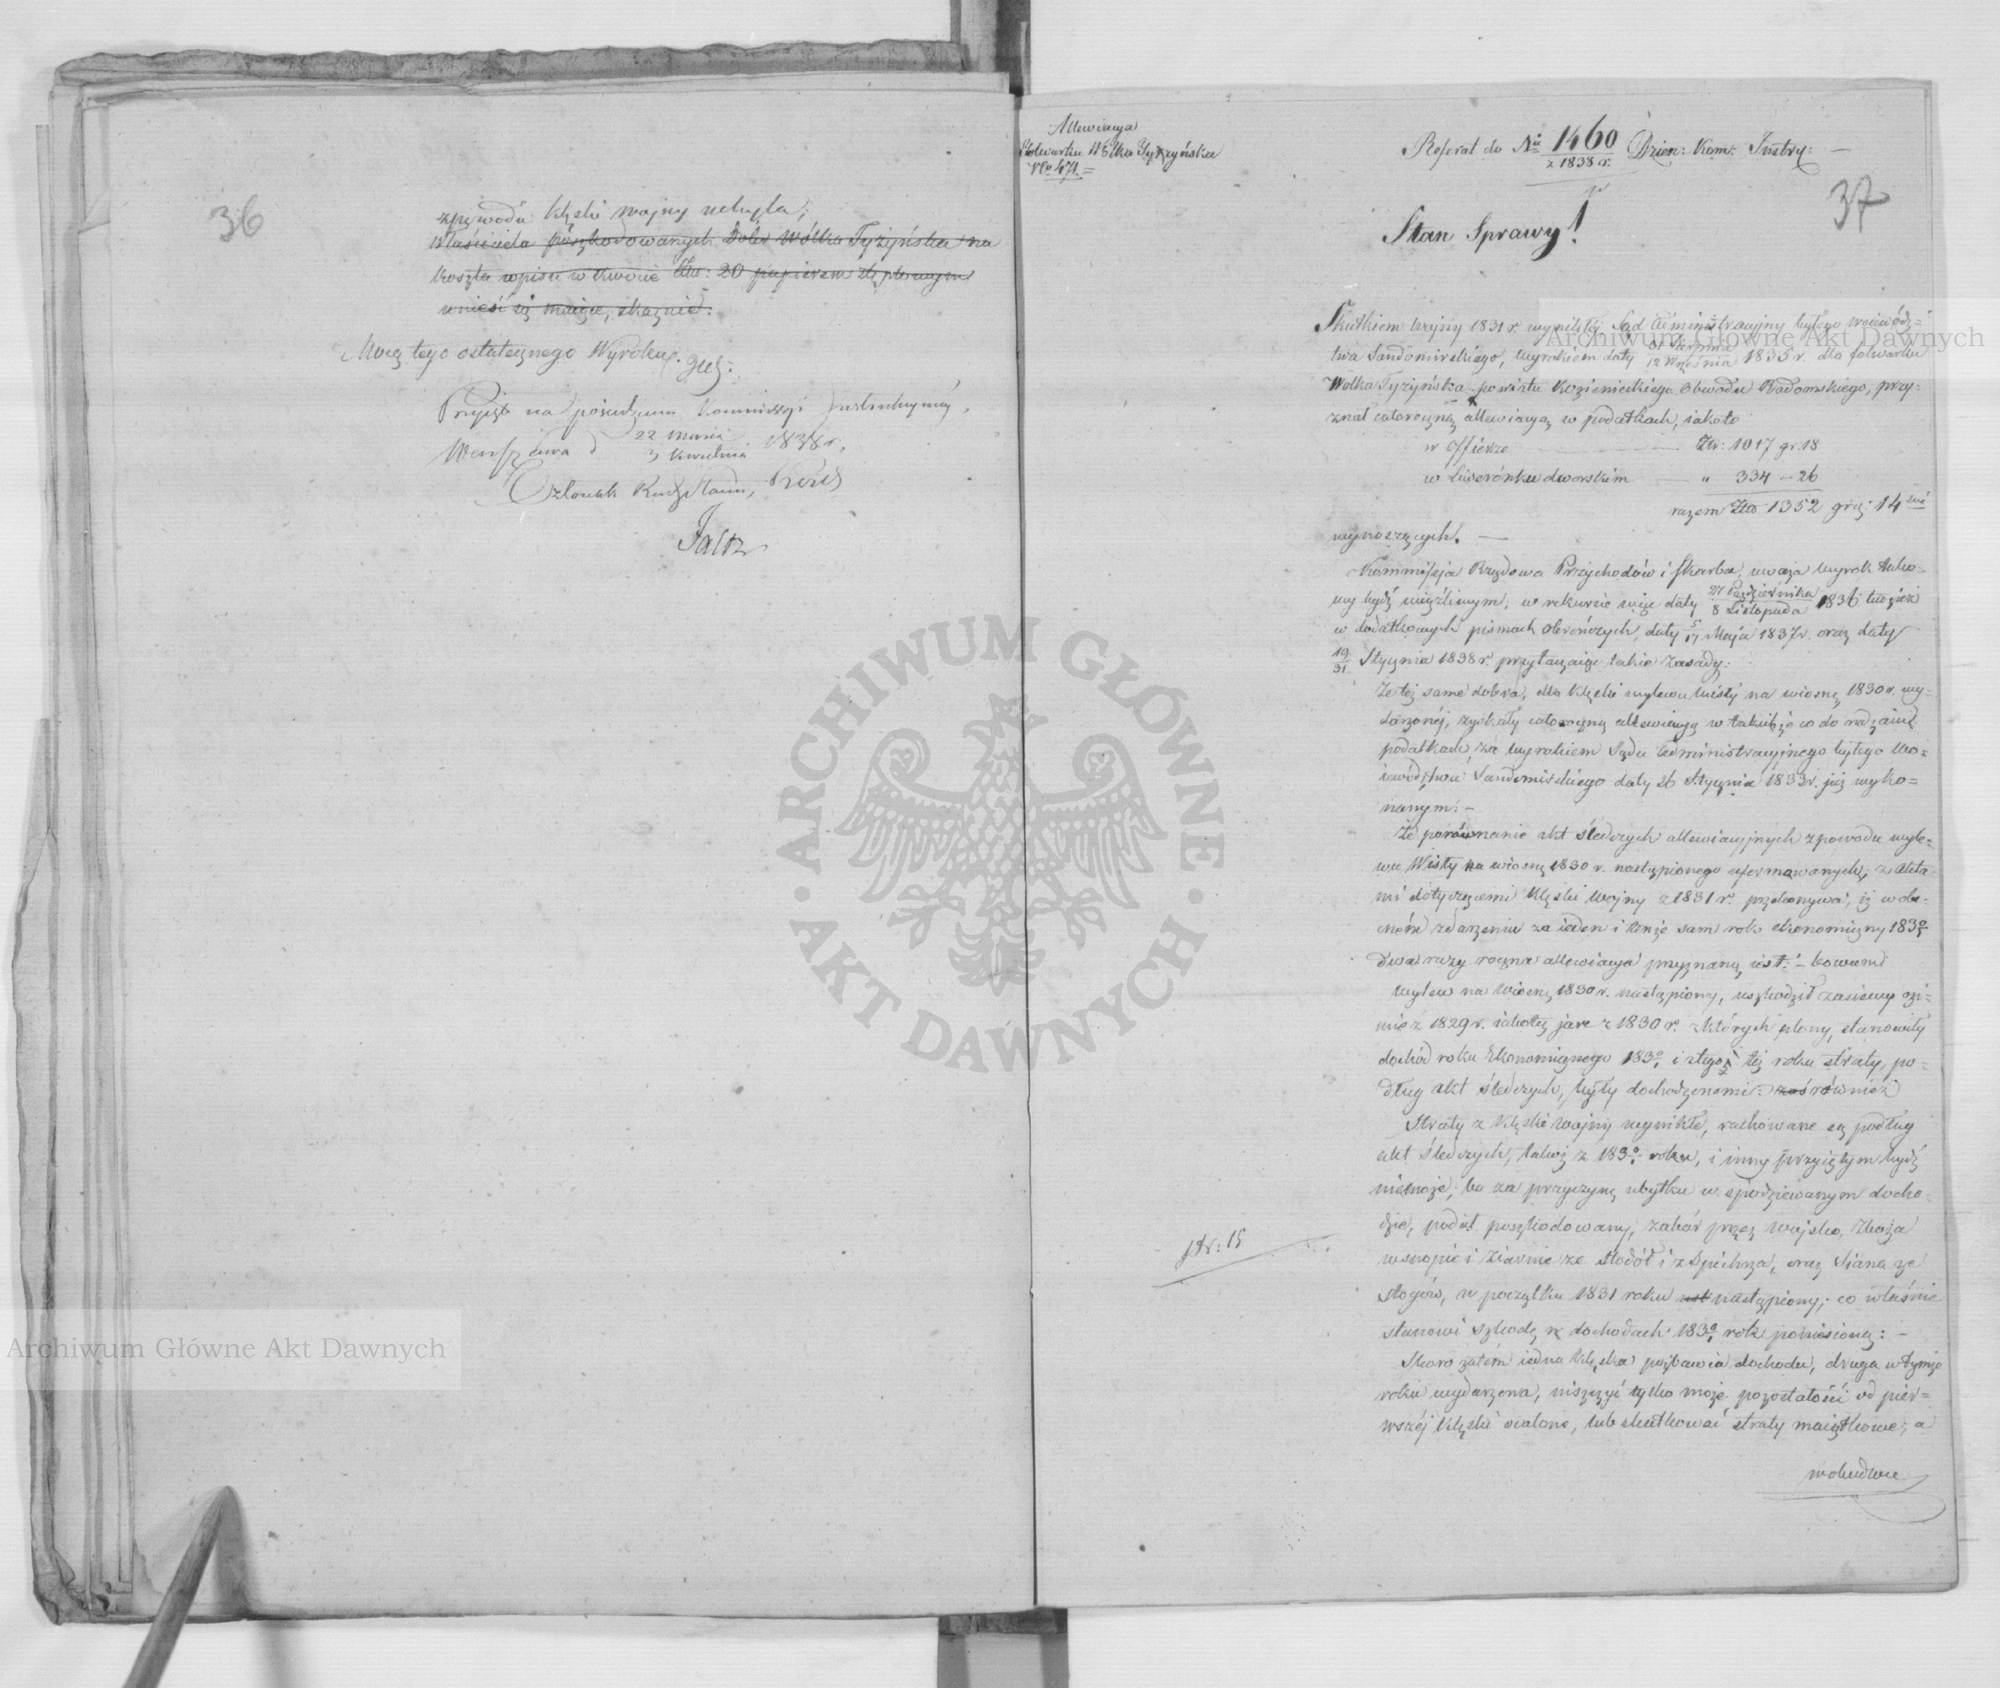 36
z powodu klęski wojny uchyla;
Właściciela poszkodowanych Dóbr Wólka Tyżyńska na
koszta wpisu w kwocie Złp: 20 papierem stęplowym
wnieść się maiące, skazuie.
Mocą tego ostatecznego Wyroku.
Przyięto na posiedzeniu Kommissyi Instrukcyinéy,
Warszawa d 22 Marca / 3 Kwietnia 1838 r.
Członek
Faltz
Allewiacya
Folwarku Wólka Tyżyńska
No 471.
Referat do No 1460 z 1838 r. Dzien: Kom: Instrc:
37
Stan Sprawy!
Skutkiem wojny 1831 r. wynikłej Sąd Administracyjny byłego Wojewódz=
twa Sandomirskiego, wyrokiem daty 31 Sierpnia / 12 Września 1835 r. dla folwarku
Wolka Tyżyńska powiatu Kozienickiego Obwodu Radomskiego, przy-
znał całoroczną allewiacyą w podatkach, iakoto
w Offierze Złp: 1017 gr. 18
w Liwerónku dworskim " 334 - 26
razem Złp 1352 gr. 14
wynoszących. —
Kommissja Rządowa Przychodów i Skarbu, uważa wyrok tako-
wy bydź uciążliwym, w rekursie więc daty 27 Października / 8 Listopada 1836 tudzież
w dodatkowych pismach obrończych, daty 5/17 Maja 1837 r. oraz daty
19/31 Stycznia 1838 r. przytaczaiąc takie zasady:
Że też same dobra, dla klęski wylewu Wisły na wiosnę 1830 r. wy-
darzonéj, zyskały całoroczną allewiacyą w takichże co do rodzaiu
podatkach, za wyrokiem Sądu Administracyjnego byłego Wo=
iewództwa Sandomirskiego daty 26 Stycznia 1833 r. już wyko=
nanym. —
Że porównanie akt śledczych allewiacyjnych z powodu wyle=
wu Wisły na wiosnę 1830 r. nastąpionego uformowanych, z akta-
mi dotyczącemi klęski wojny z 1831 r. przekonywa, iż w obu-
zdarzeniu za ieden i tenże sam rok ekonomiczny 1830/1
dwa razy roczna allewiacya przyznaną iest: — bowiem
wylew na wiosnę 1830 r. nastąpiony, uszkodził zasiewy ozi-
mie z 1829 r. iakoteż jare z 1830 r. z których plony, stanowiły
dochód roku Ekonomicznego 1830/1 i z tegoż też roku straty, po-
dług akt śledczych, były dochodzonemi: zaś również
Straty z klęski wojny wynikłe, rachowane są podług
akt śledczych, takoż z 1830/1 roku, i inny przyiętym bydź
niemoże, bo za przyczynę ubytku w spodziewanym docho-
dzie, podał poszkodowany, zabór przez wojsko, zboża
w snopie i ziarnie ze stodół i z Spichrza, oraz Siana ze
stogów, w początku 1831 roku nastąpiony; co właśnie
stanowi szkodę w dochodach 1830/1 rok poniesioną: —
Skoro zatém iedna klęska pozbawia dochodu, druga w tymże
roku wydarzona, niszczyć tylko może pozostałości od pier=
wszéj klęski ocalone, lub skutkować straty maiątkowe, a
w obudwu
str: 15